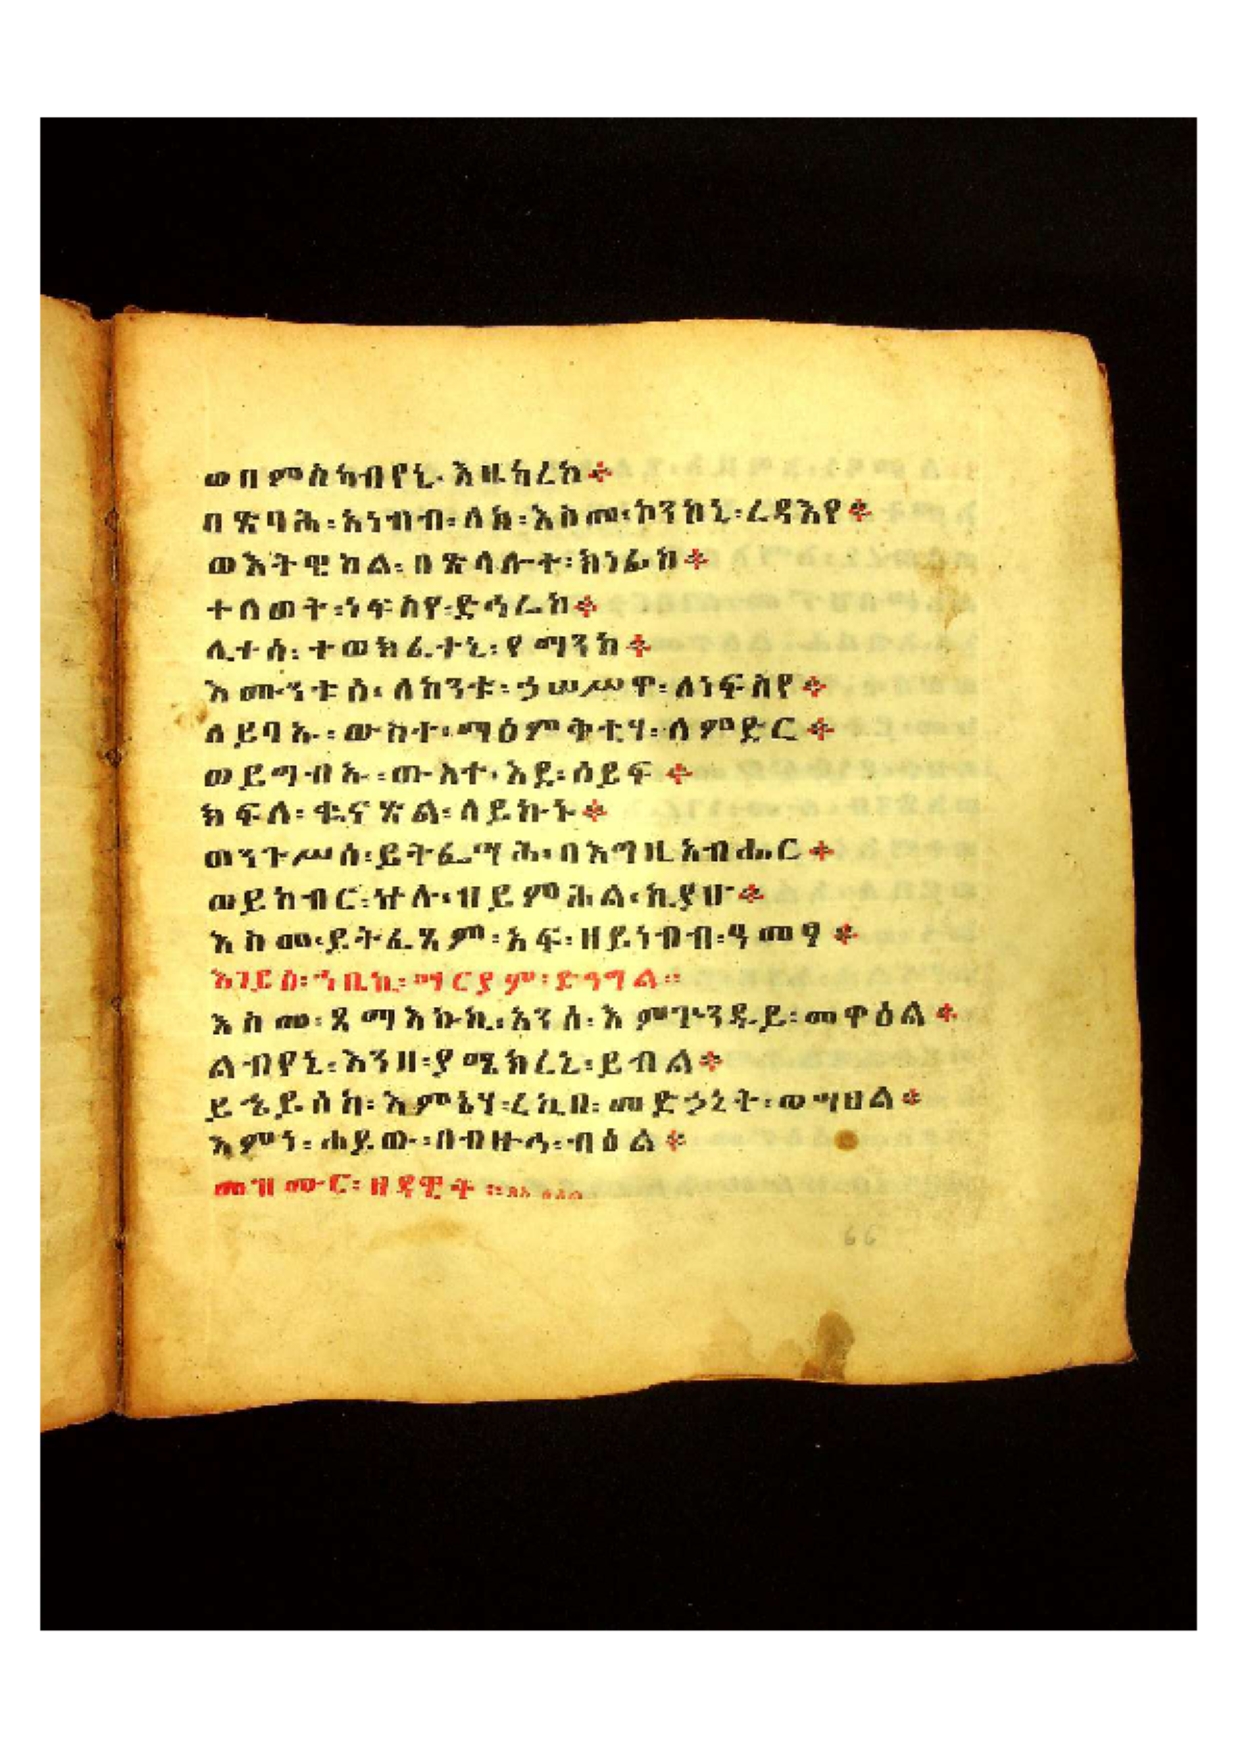 ወበምስካብየኒ፡እዜከረከ፨
በጽባሕ፡አነብብ፡ለከ፡እስመ፡ኮንከኒ፡ረዳእየ፨
ወእትዌከል፡በጽላሎተ፡ክነፊከ፨
ተለወት፡ነፍስየ፡ድኅሬከ፨
ሊተሰ፡ተወክፈተኒ፡የማንከ፨
እሙንቱሰ፡ለከንቱ፡ኃሠሥዋ፡ለነፍስየ፨
ለይባኡ፡ውስተ፡ማዕምቅቲሃ፡ለምድር፨
ወይግብኡ፡ውእተ፡እደ፡ሰይፍ፨
ክፍለ፡ቈናጽል፡ለይኩኑ፨
ወንጉሥሰ፡ይትፌሣሕ፡በእግዚአብሔር፨
ወይከብር፡ኵሉ፡ዝይምሕል፡ኪያሁ፨
እስመ፡ይትፈፃም፡አፍ፡ዘይነብብ፡ዓመፃ፨
እገይዕ፡ኀቤኪ፡ማርያም፡ድንግል፡፡
እስመ፡ጸማእኩኪ፡አንሰ፡እምጕንዱይ፡መዋዕል፨
ልብየኒ፡እንዘ፡ያሜክረኒ፡ይብል፨
ይኄይሰከ፡እምኔሃ፡ረኪበ፡መድኃኒት፡ወሣህል፨
እምነ፡ሐይው፡በብዙኅ፡ብዕል፨
መዝሙር፡ዘዳዊት፡፡
66